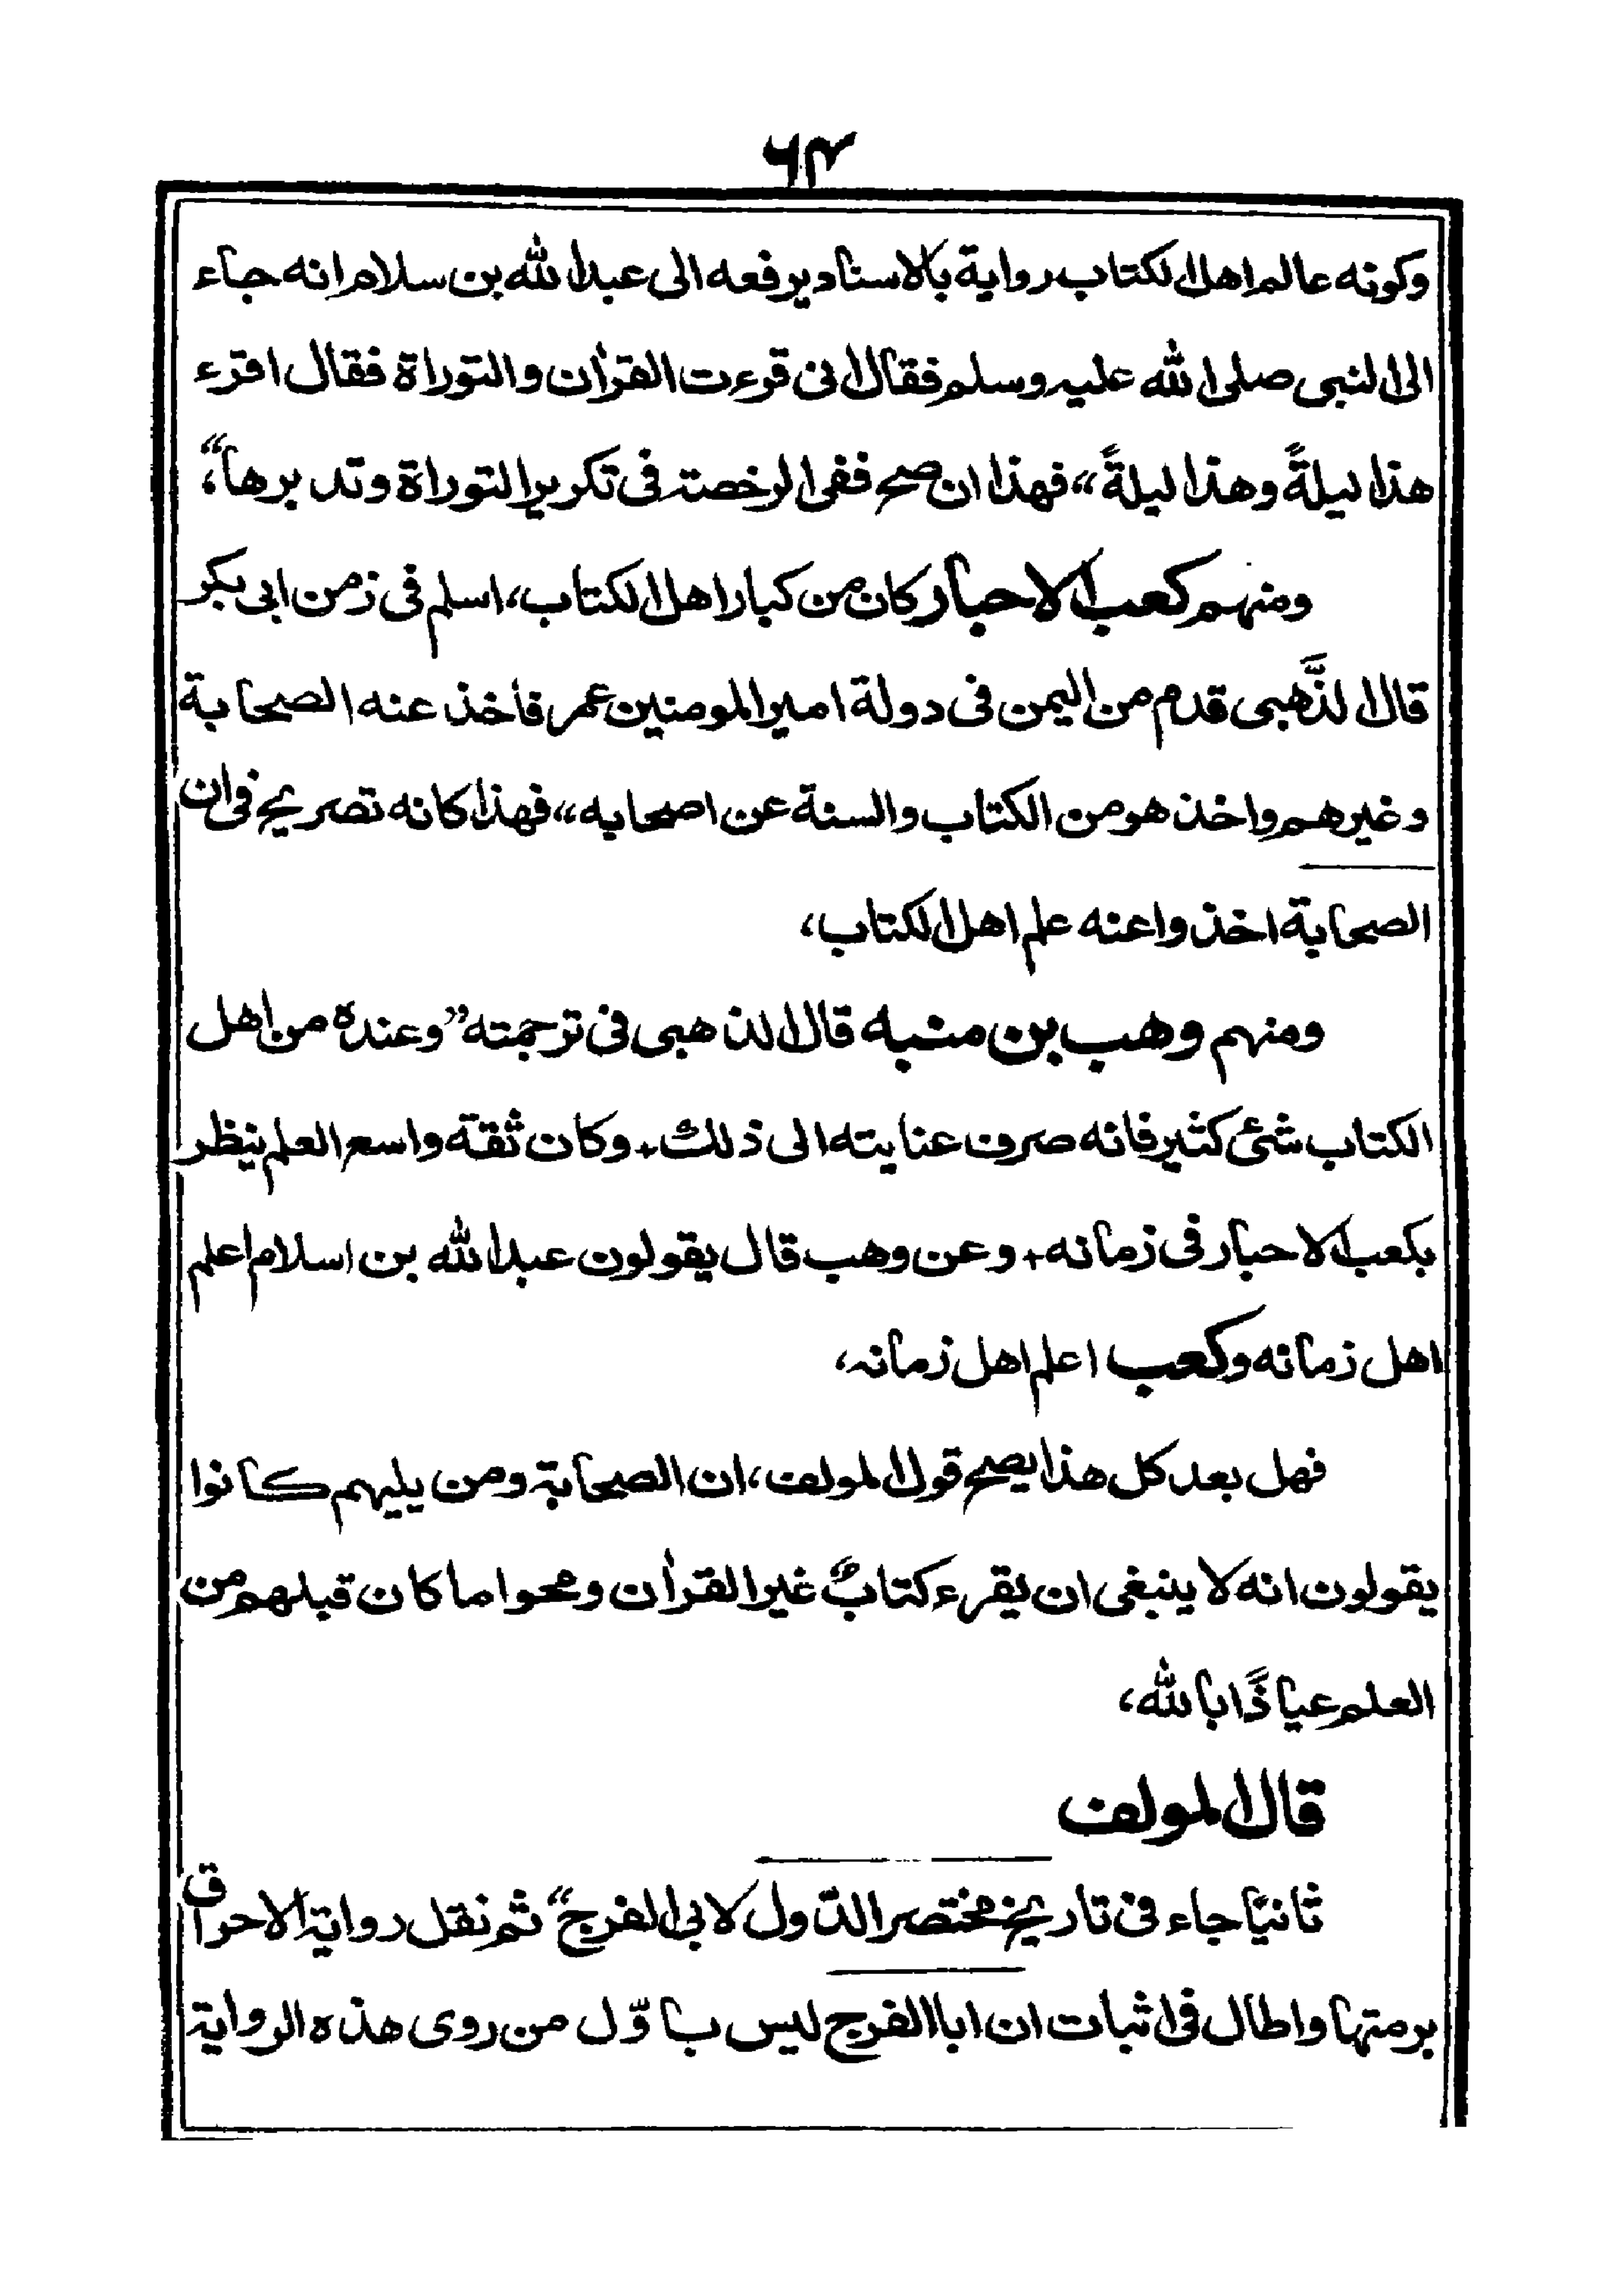 ٦٤
وكونه عالم اهل الكتاب رواية بالاسناد يرفعه الى عبد الله بن سلام انه جاء
الى النبى صلى الله عليه وسلم فقال انى قرءت القرأن والتوراة فقال اقرء
هذا ليلةً وهذا ليلةً،، فهذا ان صح ففى الرخصة فى تكرير التوراة وتدبرها"،
ومنهم كعب الاحبار كان من كبار اهل الكتاب، اسلم فى زمن ابى بكر
قال الذَّهبى قدم من اليمن فى دولة امير المومنين عمر فاخذ عنه الصحابة
وغيرهم واخذ هو من الكتاب والسنة عن اصحابه،، فهذا كانه تصريح فى ان
الصحابة اخذوا عنه علم اهل الكتاب،
ومنهم وهب بن منبه قال الذهبى فى ترجمته "وعنده من اهل
الكتاب شئ كثير فانه صرف عنايته الى ذلك+ وكان ثقة واسع العلم ينظر
بكعب الاحبار فى زمانه+ وعن وهب قال يقولون عبد الله بن اسلام اعلم
اهل زمانه وكعب اعلم اهل زمانه،
فهل بعد كل هذا يصح قول المولف، ان الصحابة ومن يليهم كانوا
يقولون انه لا ينبغى ان يقرء كتابٌ غير القرأن ومحوا ما كان قبلهم من
العلم عياذًا بالله،
قال المولف
ثانيًا جاء فى تاريخ مختصر الدّول لابى الفرج" ثم نقل رواية الاحراق
برمتها واطال فى اثبات ان ابا الفرج ليس باوّل من روى هذه الرواية